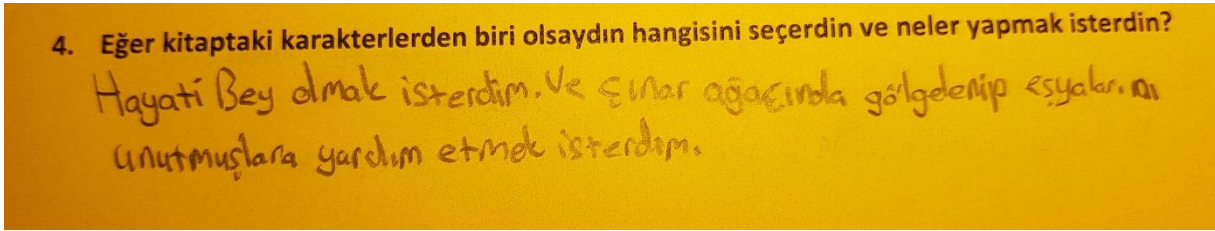 4. Eğer kitaptaki karakterlerden biri olsaydın hangisini seçerdin ve neler yapmak isterdin?
Hayati Bey olmak isterdim. Ve Çınar ağaçında gölgelenip eşyalarını
unutmuşlara yardım etmek isterdim.